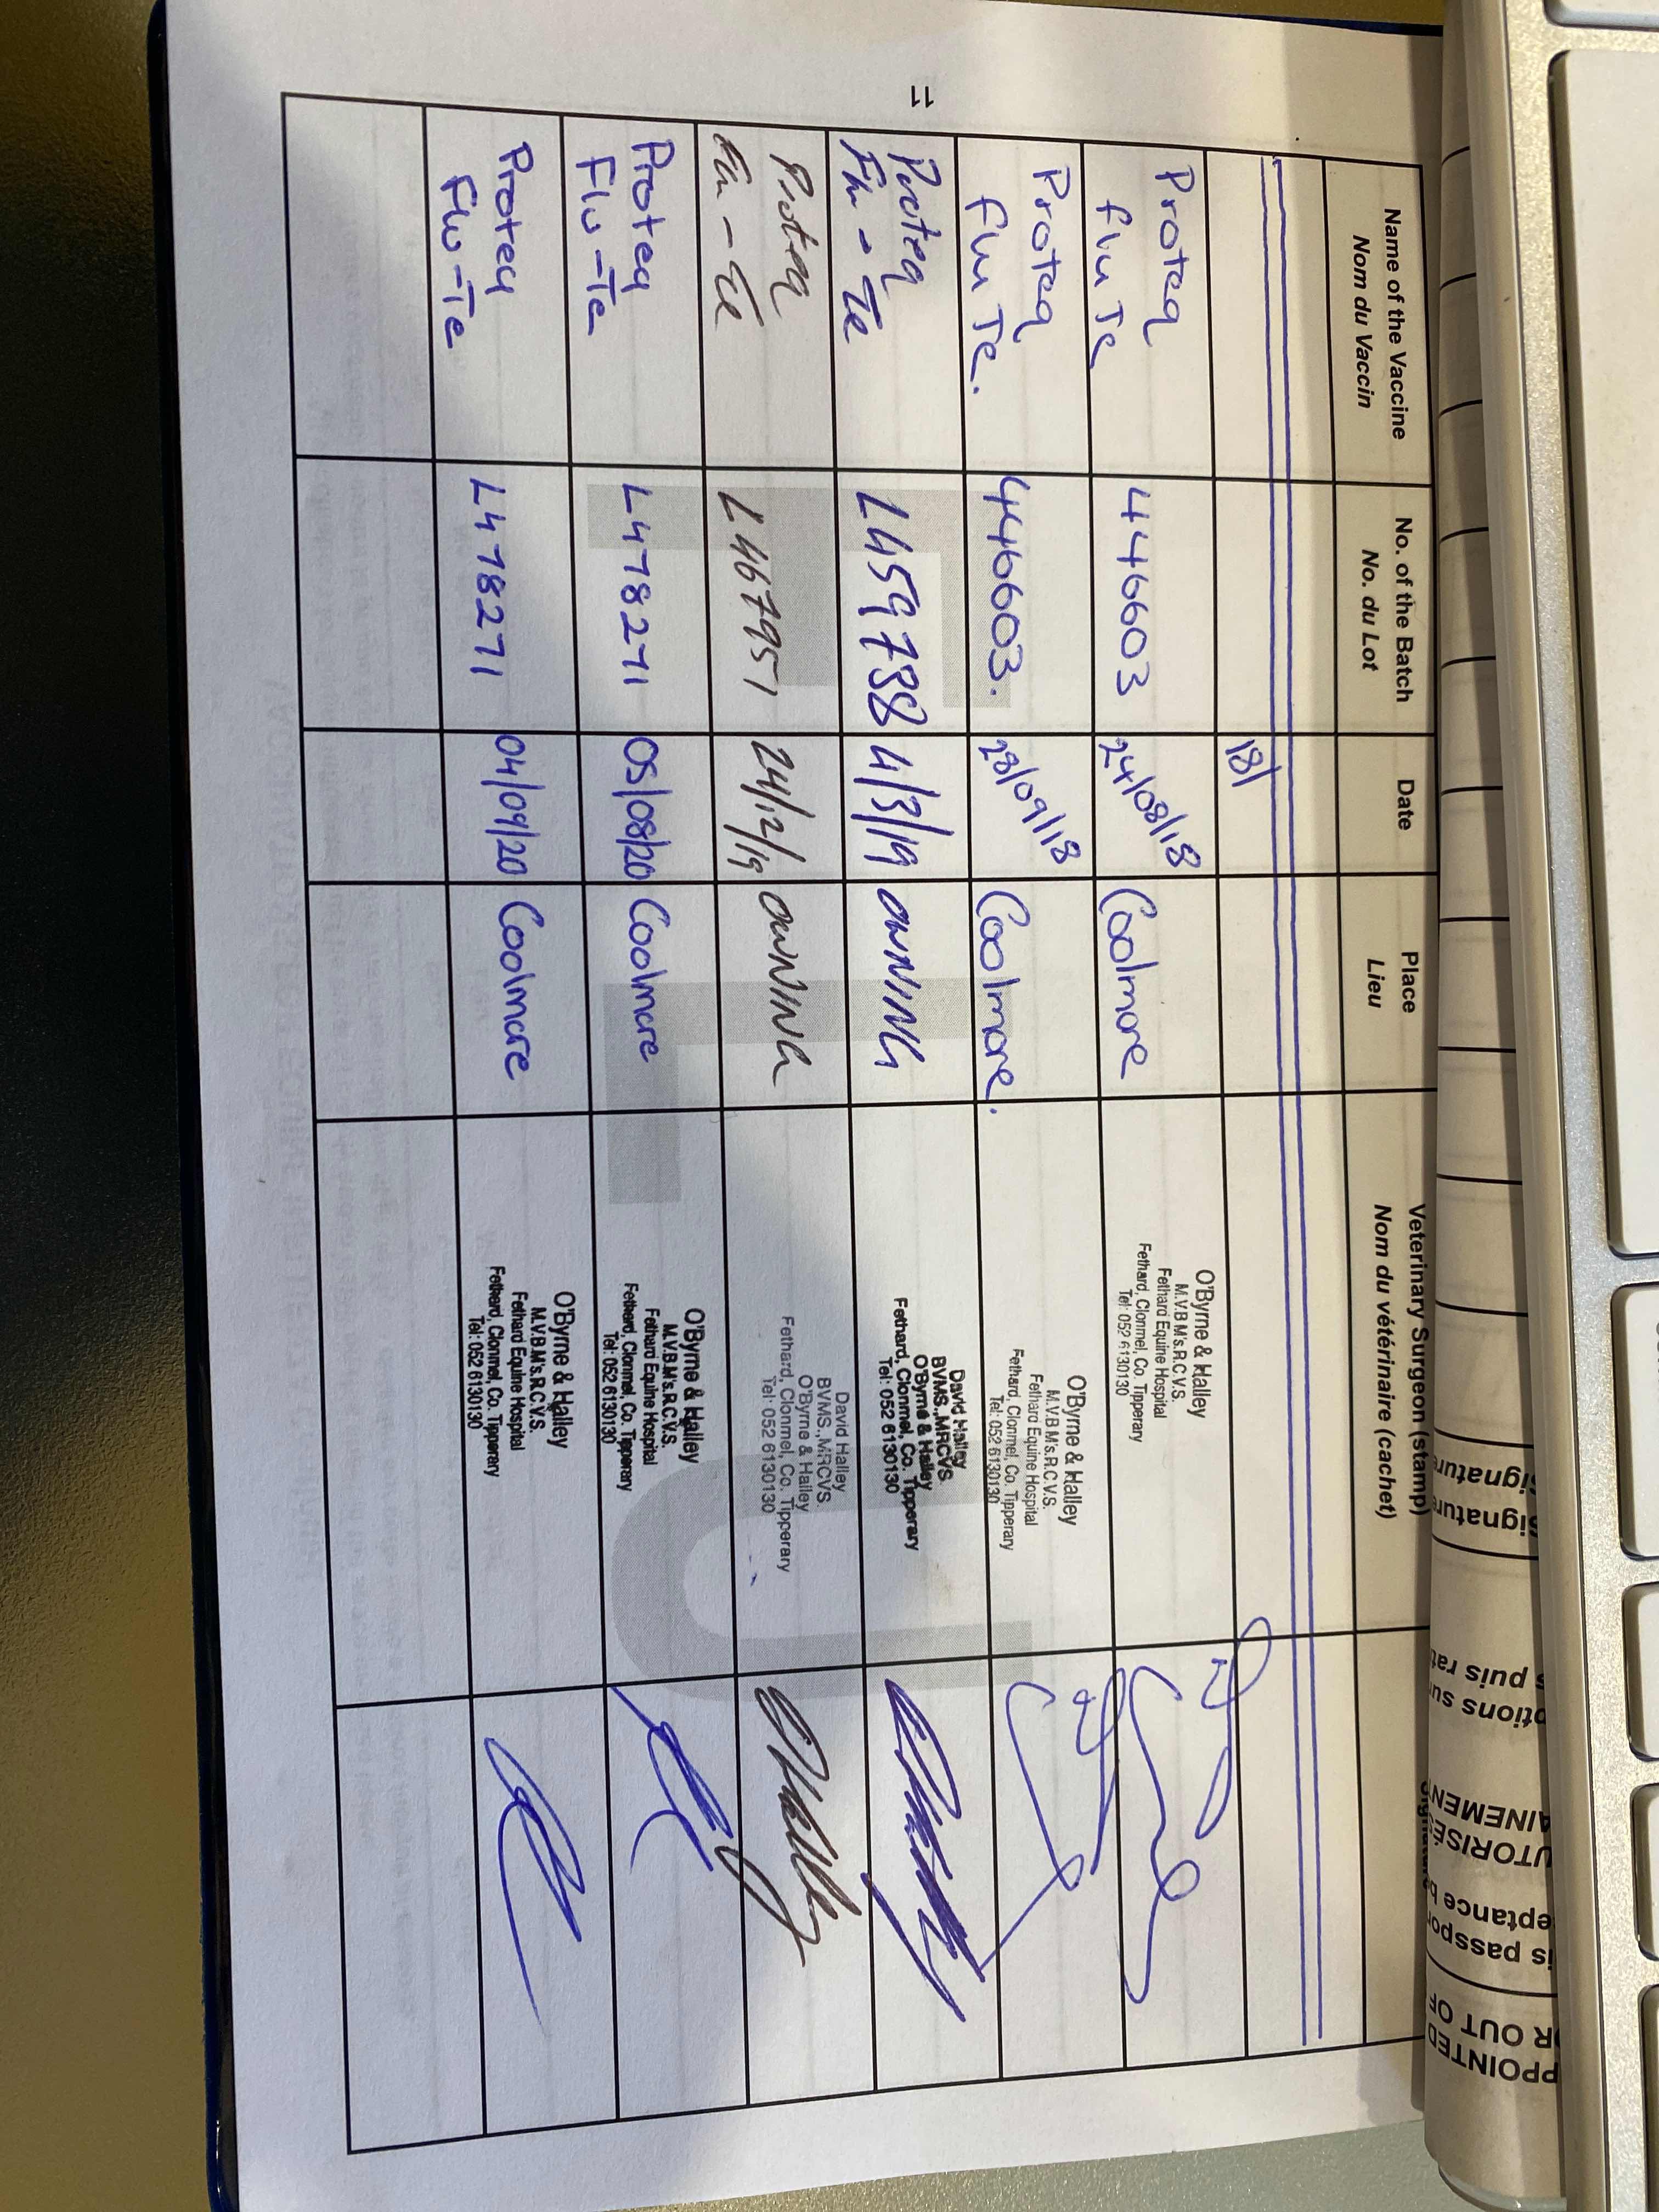 Name of the Vaccine
Nom du Vaccin
No. of the Batch
No. du Lot
Date
Place
Lieu
Veterinary Surgeon (stamp)
Nom du vétérinaire (cachet)
18/
Proteq
Flu Te
446603
24/08/18
Coolmore
O'Byrne & Halley
M.V.B M's.R.C.V.S.
Fethard Equine Hospital
Fethard, Clonmel, Co. Tipperary
Tel: 052 6130130
Proteq
Flu Te.
446603.
28/09/18
Coolmore.
O'Byrne & Halley
M.V.B M's.R.C.V.S.
Fethard Equine Hospital
Fethard, Clonmel, Co. Tipperary
Tel: 052 6130130
Proteq
Flu - Te
L459738
4/3/19
OWNING
David Halley
BVMS.,MRCVS.
O'Byrne & Halley
Fethard, Clonmel, Co. Tipperary
Tel: 052 6130130
Proteq
Flu - Te
L467951
24/12/19
OWNING
David Halley
BVMS.,MRCVS.
O'Byrne & Halley
Fethard, Clonmel, Co. Tipperary
Tel: 052 6130130
Proteq
Flu -Te
L478271
05/08/20
Coolmore
O'Byrne & Halley
M.V.B M's.R.C.V.S.
Fethard Equine Hospital
Fethard, Clonmel, Co. Tipperary
Tel: 052 6130130
Proteq
Flu -Te
L478271
04/09/20
Coolmore
O'Byrne & Halley
M.V.B M's.R.C.V.S.
Fethard Equine Hospital
Fethard, Clonmel, Co. Tipperary
Tel: 052 6130130
11
PPOINTED
R OUT OF
puis